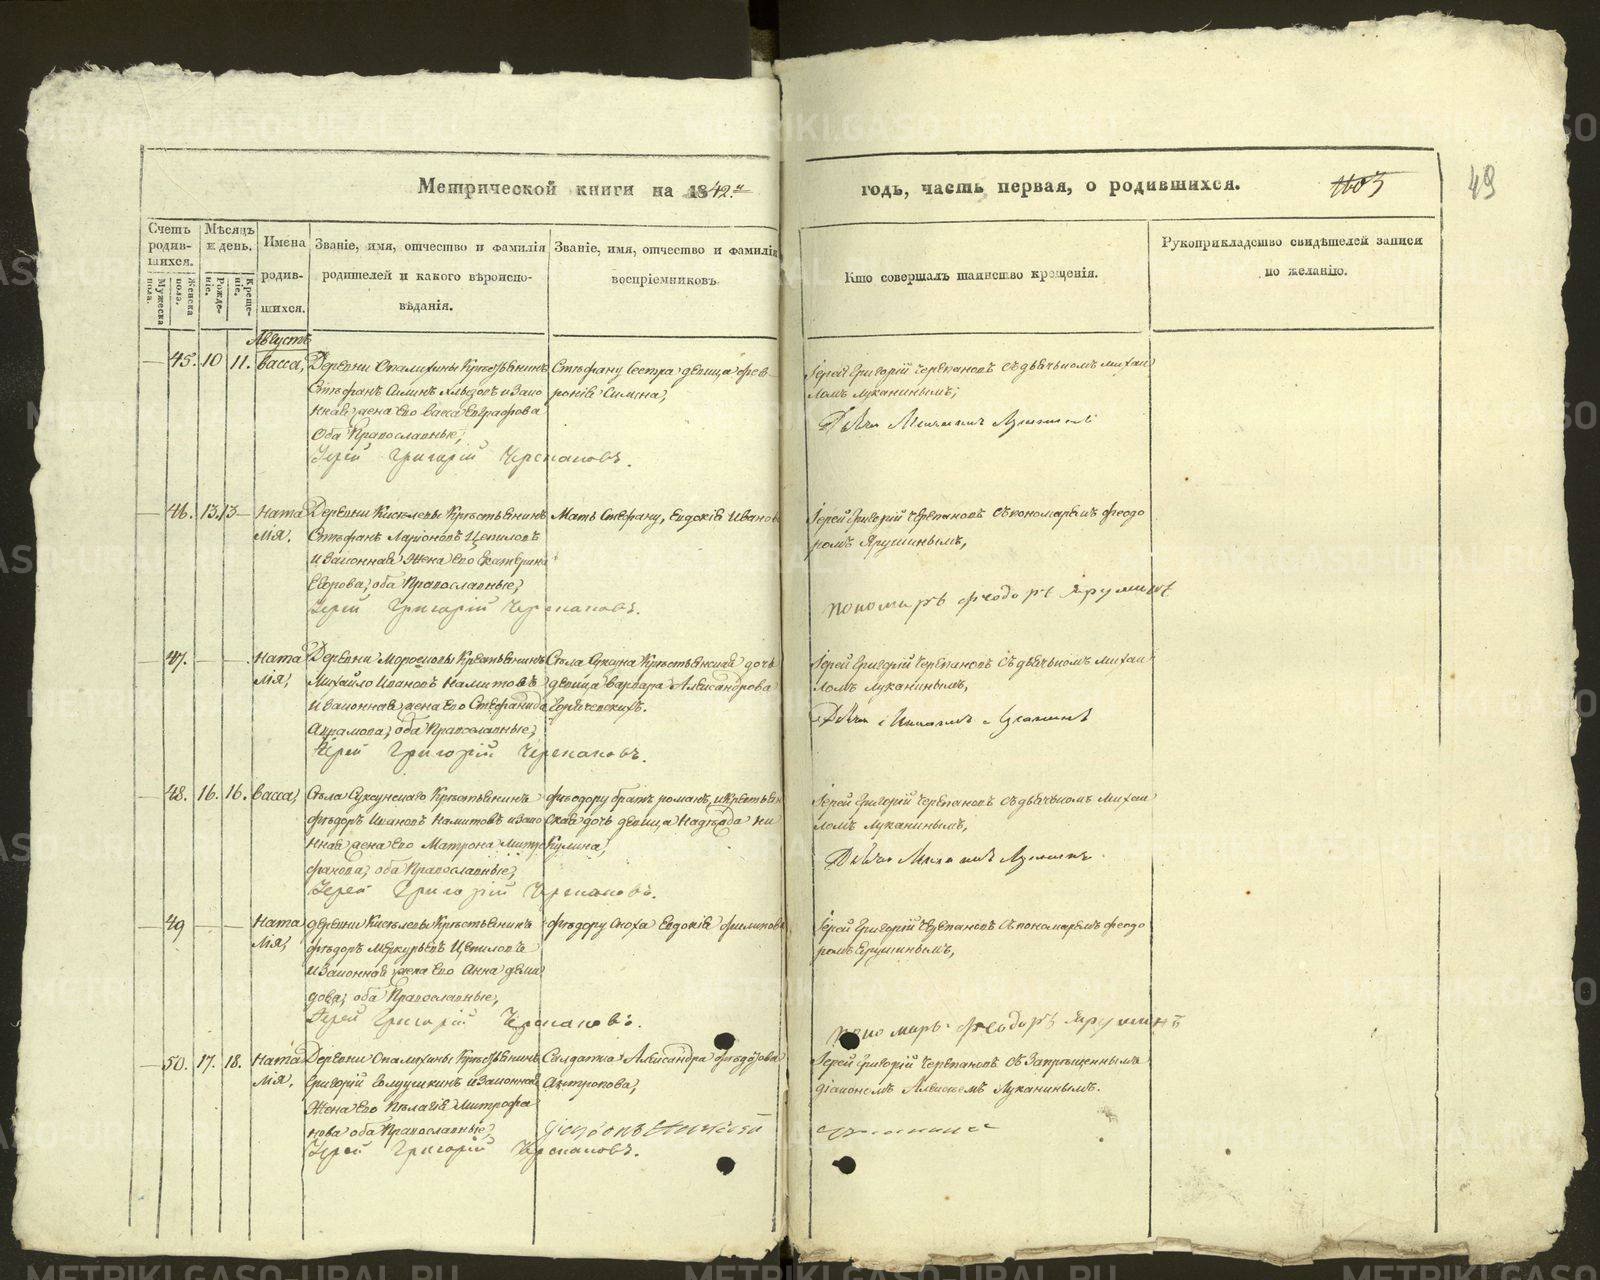 Метрической книги на 1842й
годъ, часть первая, о родившихся.
1103
49
Счетъ родив-шихся.
Мужеска пола.
Женска пола.
Мѣсяцъ и день.
Рожде-ніе.
Креще-ніе.
Имена родив-шихся.
Званіе, имя, отчество и фамилія
родителей и какого вѣроиспо-
вѣданія.
Званіе, имя, отчество и фамилія
воспріемниковъ
Кто совершалъ таинство крещенія.
Рукоприкладство свидѣтелей записи
по желанію.
Августъ
45. 10 11. Васса,
Деревни Опалихины Крестьянинъ
Стефанъ Силинъ и Зако
нная жена Его Васса Евграфова
Оба Православные;
Іерей Григорій Черепановъ.
Стефану Сестра девица Фев-
ронія Силина,
Іерей Григорій Черепановъ Съ дьячкомъ Михаи
ломъ Лукинымъ;
46. 13. 13 Ната
лія.
Деревни Киселевы Крестьянинъ
Стефанъ Ларионовъ Цепиловъ
и Законная Жена Его Екатерина
Егорова, оба Православные;
Іерей Григорій Черепановъ.
Мать Стефану, Евдокія Иванов
Іерей Григорій Черепановъ Съ пономаремъ Феодо
ромъ Ярушинымъ,
пономарь Феодоръ Ярушинъ
47. Ната
лія,
Деревни Крестьянинъ
Михайло Ивановъ Намитовъ
и Законная жена Его Стефанида
Аврамова, оба Православные;
Іерей Григорій Черепановъ.
Села Суксуна Крестьянская дочь
девица Варвара Александрова
Іерей Григорій Черепановъ Съ дьячкомъ Михаи
ломъ Лукинымъ,
48. 16. 16. Васса,
Села Суксунскаго Крестьянинъ
Федоръ Ивановъ Намитовъ и Зако
нная жена Его Матрона Митро
фанова, оба Православные;
Іерей Григорій Черепановъ.
Федору братъ Романъ, и Крестьян
ская дочь девица Надежда Ни
кулина,
Іерей Григорій Черепановъ Съ дьячкомъ Михаи
ломъ Лукинымъ,
49 Ната
лія,
деревни Киселевы Крестьянинъ
Федоръ Меркурьевъ Цепиловъ
и Законная жена Его Анна Деми
дова, оба Православные,
Іерей Григорій Черепановъ.
Федору Сноха Евдокія Филипова
Іерей Григорій Черепановъ Съ пономаремъ Феодо
ромъ Ярушинымъ,
пономарь Феодоръ Ярушинъ
50. 17. 18. Ната
лія.
Деревни Опалихины Крестьянинъ
Григорій и Законная
Жена Его Пелагія Митрофа
нова оба Православные,
Іерей Григорій Черепановъ.
Солдатка Александра Федорова
Антропова,
Іерей Григорій Черепановъ Съ Запрещеннымъ
діакономъ Алексеемъ Лукинымъ.
METRIKI.GASO-URAL.RU